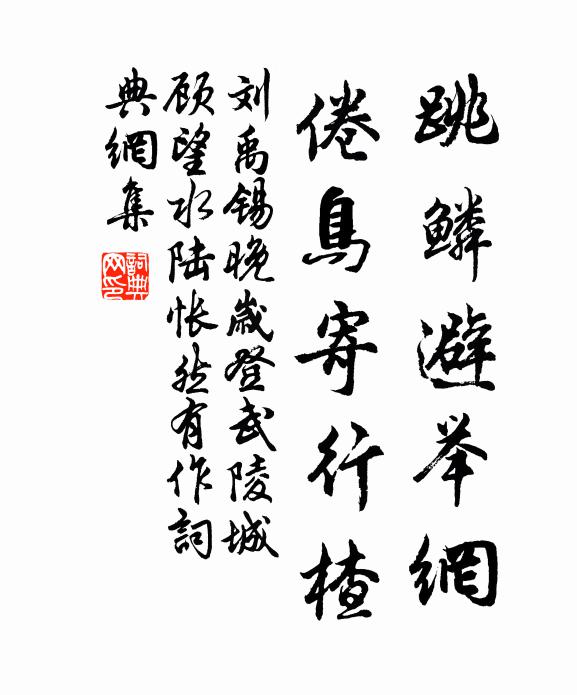 跳鳞避举網
倦鳥寄行楂
刘禹锡晚歲登武陵城
顾望水陆怅然有作詞
典網集
詞典网印